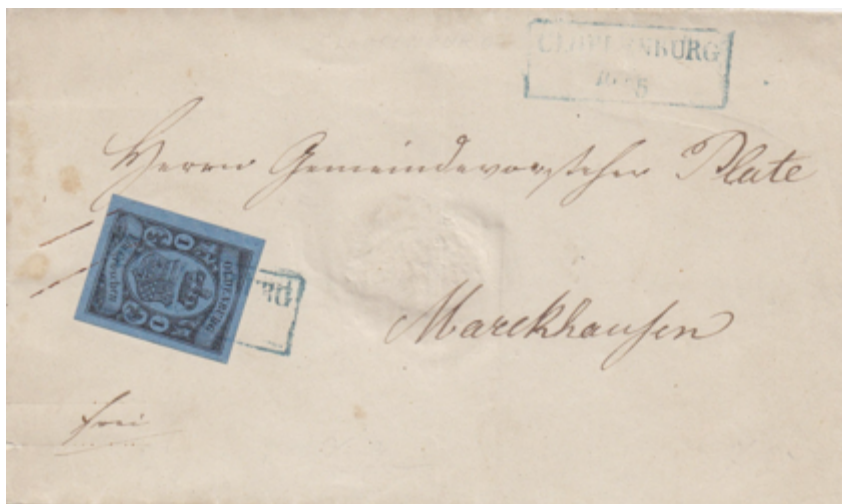 CLOPPENBURG
Herrn Gemeindevorsteher Plate
OLDENBURG
Marckhausen
frei